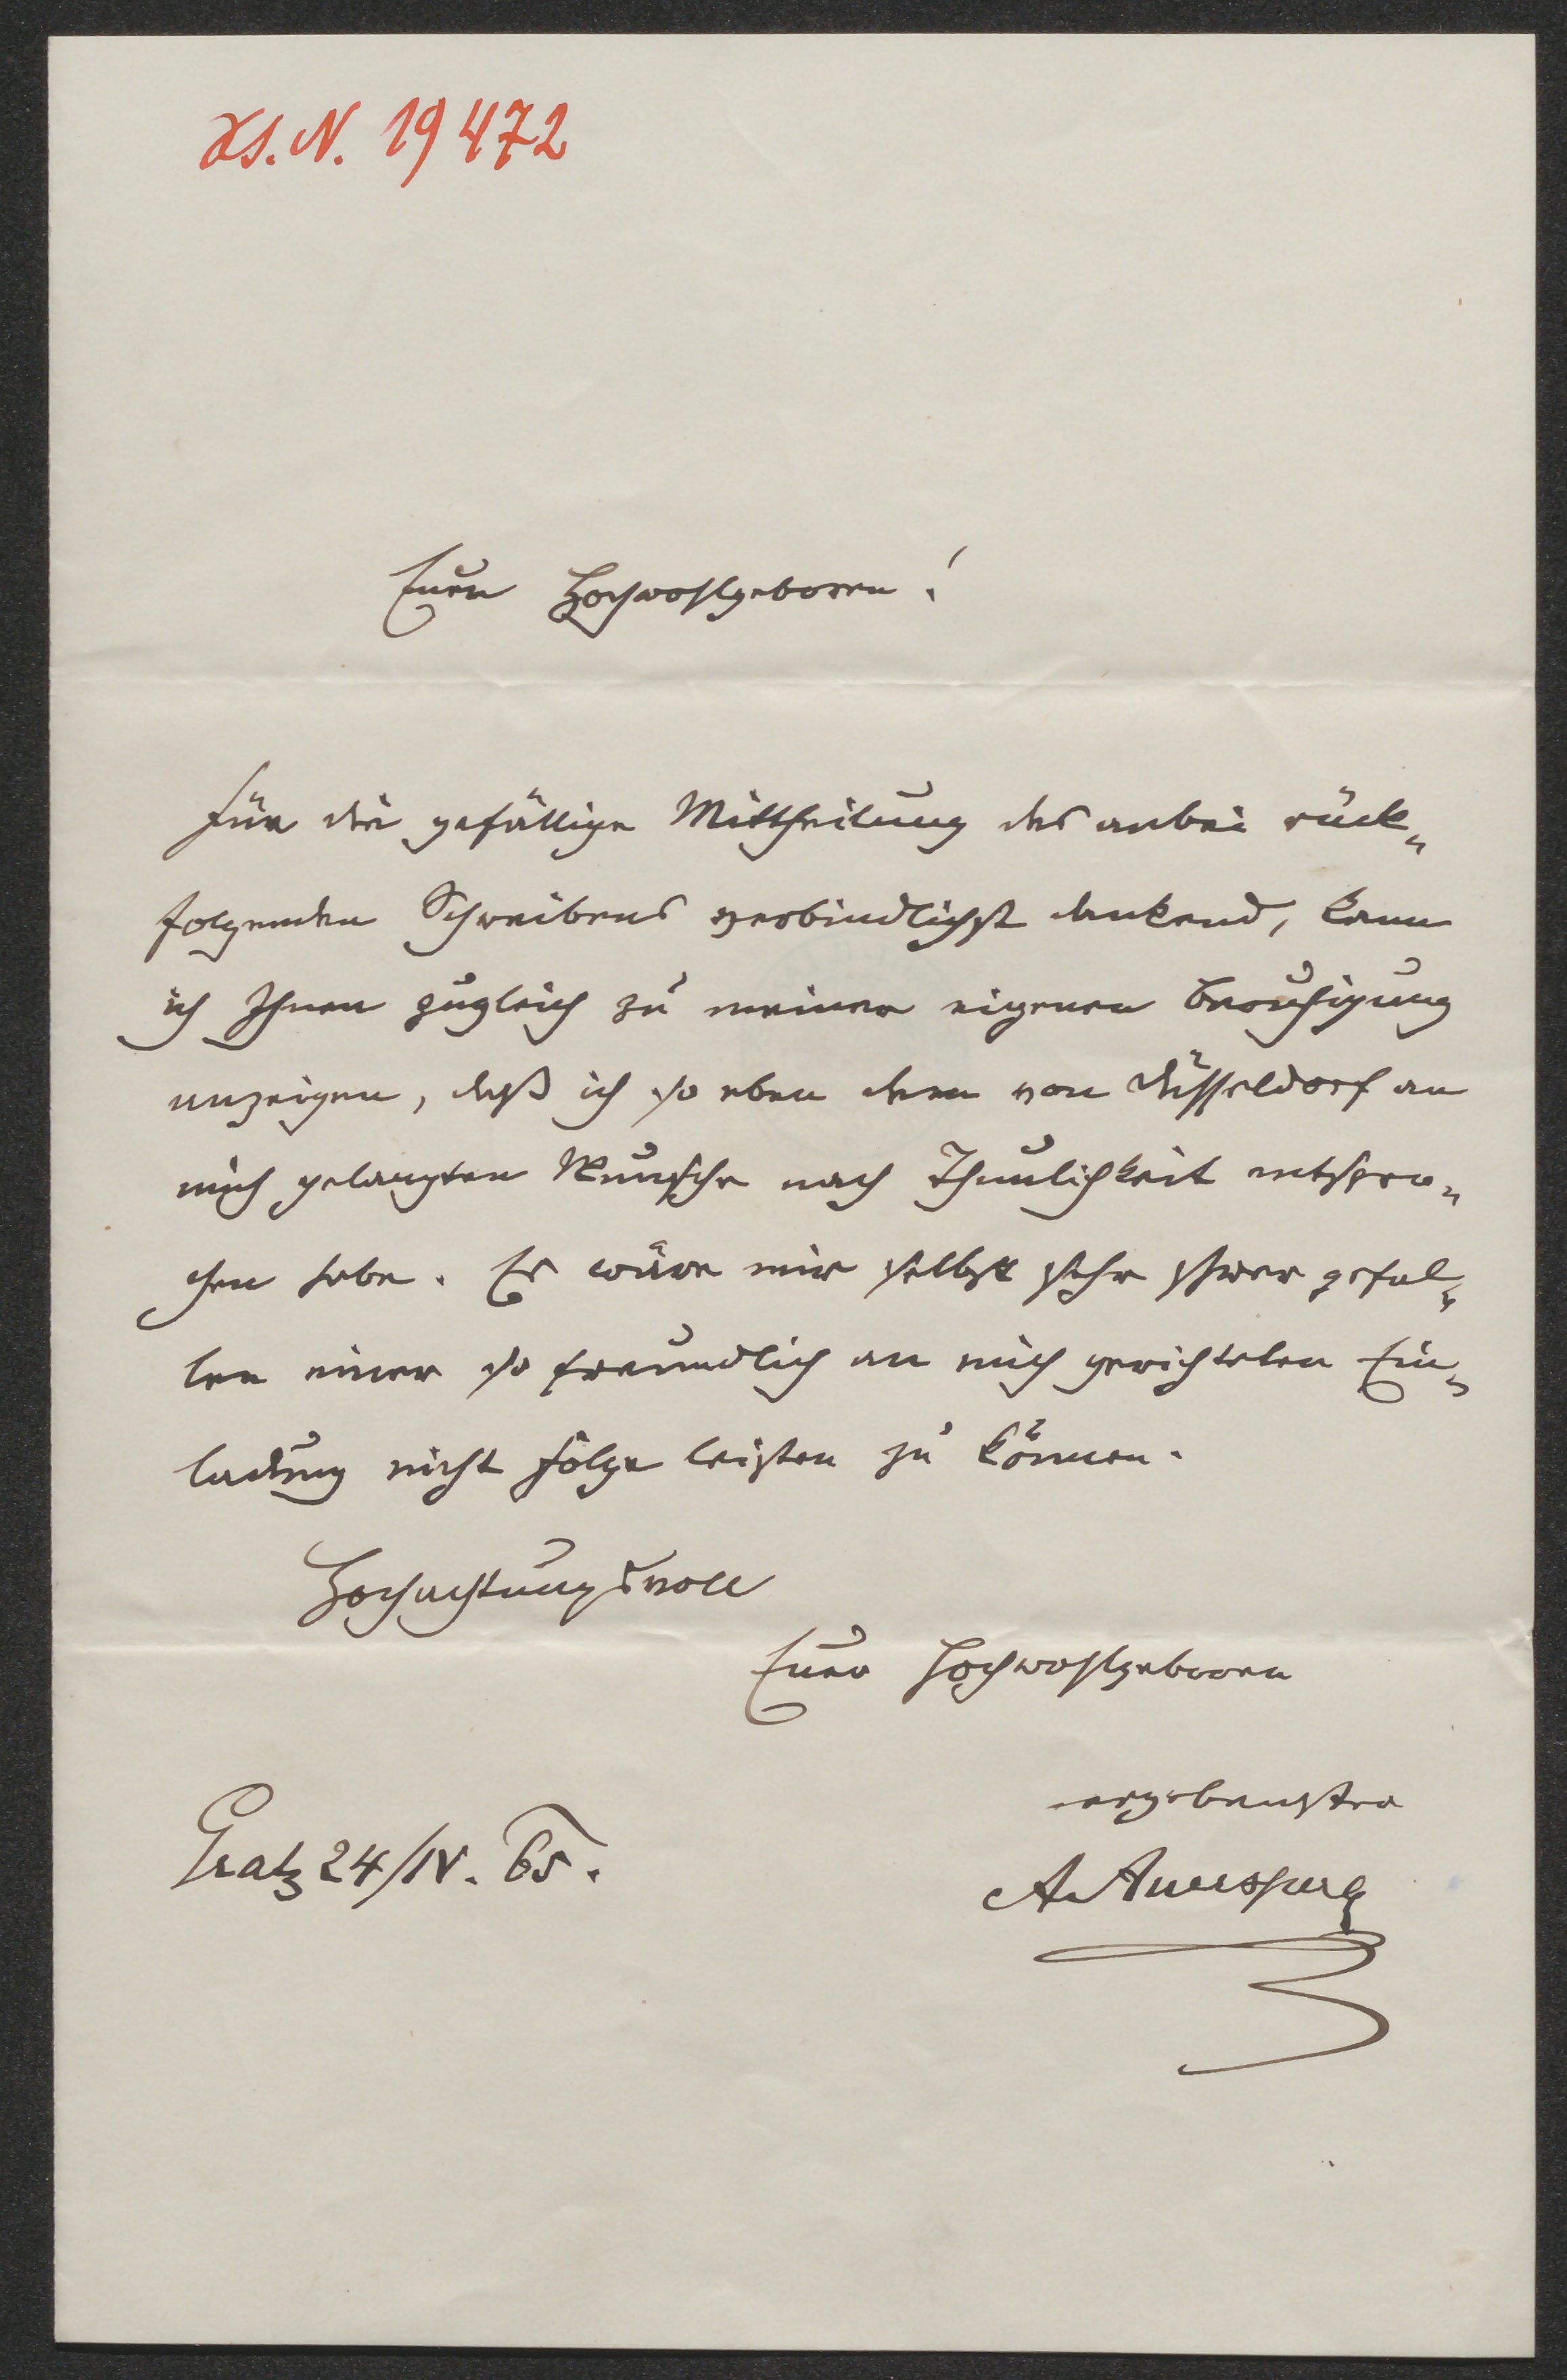 H.I.N. 19472
Euer Hochwohlgeboren!
Für die gefällige Mittheilung des anbei rück„
folgenden Schreibens verbindlichst dankend, kann
ich Ihnen zugleich zu meiner eigenen Beruhigung
anzeigen, daß ich so eben dem von Düsseldorf an
mich gelangten Wunsche nach Thunlichkeit entspro„
chen habe. Es wäre mir selbst sehr schwer gefal„
len einer so freundlich an mich gerichteten Ein„
ladung nicht Folge leisten zu können.
Hochachtungsvoll
Euer Hochwohlgeboren
ergebenster
Gratz 24/IV. 65.
A. Auersperg